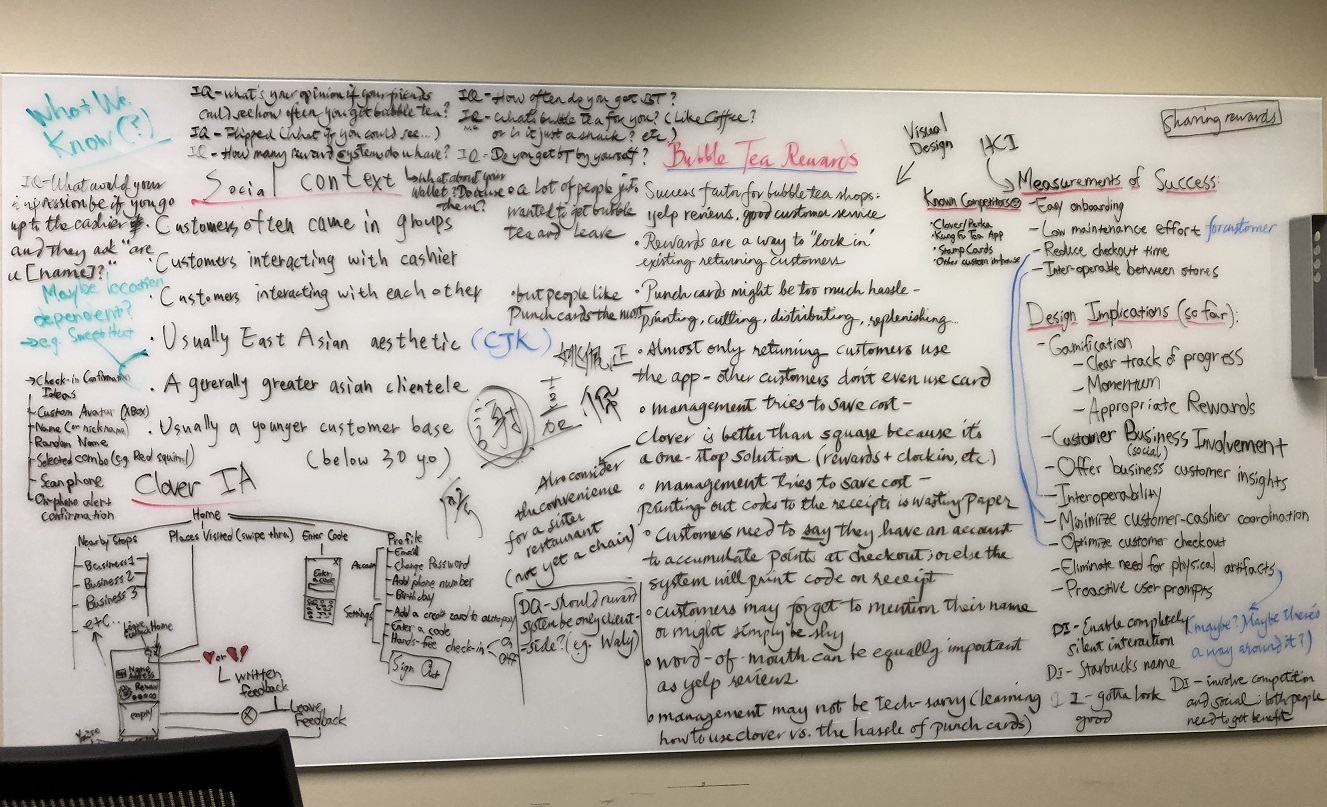 What We
Know(?)
IQ-what's your opinion if your friends
could see how often you get bubble tea?
IQ-Flipped (what if you could see...)
IQ-How many reward system do u have?
what about your
wallet? Do u use
them?
IQ-How often do you get BT?
IQ-What's bubble tea for you? (Like Coffee?
or is it just a snack? etc.)
IQ-Do you get BT by yourself?
IQ-What would your
impression be if you go
up to the cashier
and they ask "are
u [name]?"
Maybe location
dependent?
→eg. Sweet Hut
Social context
Customers often came in groups
Customers interacting with cashier
Customers interacting with each other
Usually East Asian aesthetic (CJK)
A generally greater asian clientele
Usually a younger customer base
(below 30 yo)
→Check-in Confirmation
Ideas
Custom Avatar (XBox)
Name (or nickname)
Random Name
Selected combo (e.g. Red squirrel)
Scan phone
On-phone alert
confirmation
Clover IA
Home
Nearby Stops
Business 1
Business 2
Business 3
etc...
Places Visited (swipe thru)
Enter Code
Enter
a code
Profile
Account
Email
Change Password
Add phone number
Birthday
Settings
Add a credit card to autopay
Enter a code
Hands-free check-in
On
Off
Sign Out
Name
Address
Reward
empty
or
written
feedback
Leave
Feedback
a lot of people just
wanted to get bubble
tea and leave
but people like
Punch cards the most
謝
Also consider
the convenience
for a sister
restaurant
(not yet a chain)
DQ-should reward
system be only client-
-side? (eg. Waly)
Bubble Tea Rewards
Success factor for bubble tea shops:
yelp reviews, good customer service
• Rewards are a way to "lock in"
existing returning customers
• Punch cards might be too much hassle -
printing, cutting, distributing, replenishing...
• Almost only returning customers use
the app - other customers don't even use card
• management tries to save cost -
clover is better than square because it's
a one-stop solution (rewards + clock in, etc.)
• management tries to save cost -
printing out codes to the receipts is wasting paper
• Customers need to say they have an account
to accumulate points at checkout; or else the
system will print code on receipt
• customers may forget to mention their name
or might simply be shy
• word-of-mouth can be equally important
as yelp reviews
• management may not be tech-savvy (learning
how to use clover vs. the hassle of punch cards)
Visual
Design
HCI
Sharing rewards
Known Competitors
• Clover/Perka
• Kung Fu Tea App
• Stamp Cards
• Other custom in-house
Measurements of Success:
-Easy onboarding
-Low maintenance effort for customer
-Reduce checkout time
-Inter-operable between stores
Design Implications (so far):
-Gamification
-Clear track of progress
-Momentum
-Appropriate Rewards
-Customer Business Involvement
(social)
-Offer business customer insights
-Interoperability
-Minimize customer-cashier coordination
-Optimize customer checkout
-Eliminate need for physical artifacts
-Proactive user prompts
DI-Enable completely
silent interaction
(maybe?) Maybe there's
a way around it!)
DI-Starbucks name
I-gotta look
good
DI-involve competition
and social; both people
need to get benefit